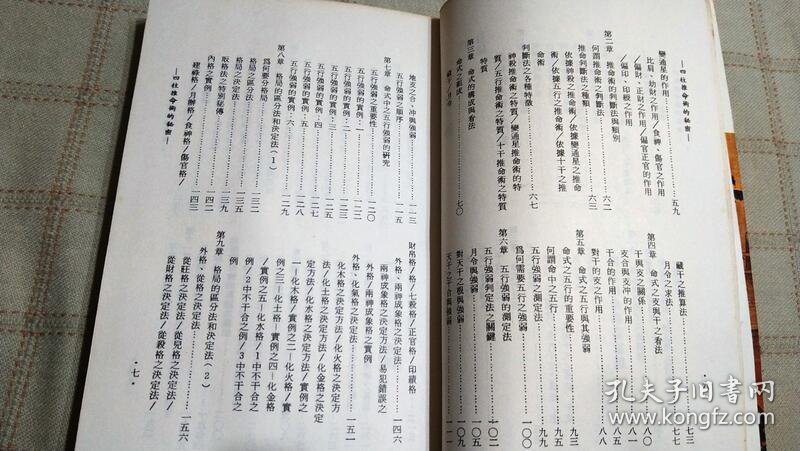 —四柱推命術的秘密—
變通星的作用……五九
比肩、劫財之作用/食神、傷官之作用
/偏財、正財之作用/偏官正官的作用
/偏印、印綬之作用
第二章 推命術的判斷法與類別
何謂推命術之判斷法……六三
推命判斷法之種類……六三
/依據神殺之推命術/依據變通星之推命
術/依據五行之推命術/依據十干之推
命術
判斷法之各種特徵……六七
神殺推命術之特質/變通星推命術的特
質/五行推命術之特質/十干推命術之
特質
第三章 命式的構成與看法
命式之形式……七〇
藏干之推算法……七三
月令之求法……七七
第四章 命式之支與干之看法
干與支之關係……八〇
支合與支冲的作用……八三
干合的作用……八八
對干的支之作用……九三
第五章 命式之五行與其強弱
命式之五行的重要性……九八
何謂命中之五行……九九
第六章 五行強弱的測定法
五行強弱之測定法……
爲何需要五行之強弱……
五行強弱判定法之關鍵……一〇二
月令與強弱……一〇五
對天干之根與強弱……一〇九
天干之干合與強弱……
地支之合、冲與強弱……一一三
五行強弱之順序……一一五
第七章 命式中之五行強弱的研究
五行強弱之重要性……一二〇
五行強弱的實例:一
五行強弱的實例:二
五行強弱的實例:三
五行強弱的實例:四……一二七
五行強弱的實例:五
五行強弱的實例:六……一二九
第八章 格局的區分法和決定法(1)
爲何要分格局……
格局的區分法……一三二
格局之決定法……一三六
取格法之特別秘傳……一三九
內格之實例……一四二
建祿格/月刃格/食神格/傷官格/……一四三
—四柱推命術的秘密—
財帛格/七殺格/正官格/印綬格
外格、兩神成象格之決定法……一四六
兩神成象格之決定方法/易犯錯誤之
外格/兩神成象格之實例
外格、化氣格之決定法……一五一
化木格之決定方法/化火格之決定方
法/化土格之決定方法/化金格之決定
定方法/化水格之決定方法/實例之
一—化木格/實例之二—化火格/實
例之三—化土格—實例之四—化金格
/實例之五—化水格/1中不干合之
例/2中不干合之例/3中不干合之
例
第九章 格局的區分法和決定法(2)
外格、從格之決定法……一五六
從旺格之決定法/從兒格之決定法/
從財格之決定法/從殺格之決定法/
·七·
孔夫子旧书网
kongfz.com